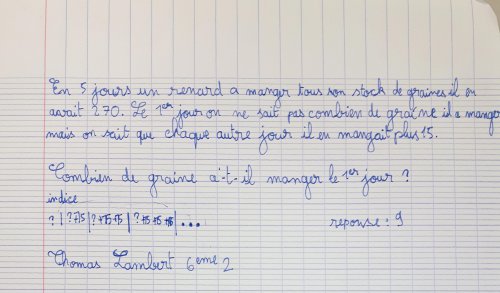 En 5 jours un renard a manger tous son stock de graines il en
avait 270. Le 1er jour on ne sait pas combien de graine il a manger
mais on sait que chaque autre jour il en mangait plus 15.
Combien de graine a-t-il manger le 1er jour ?
indice
? | ?+15 | ?+15+15 | ?+15+15+15 | ...
reponse : 9
Thomas Lambert 6eme 2